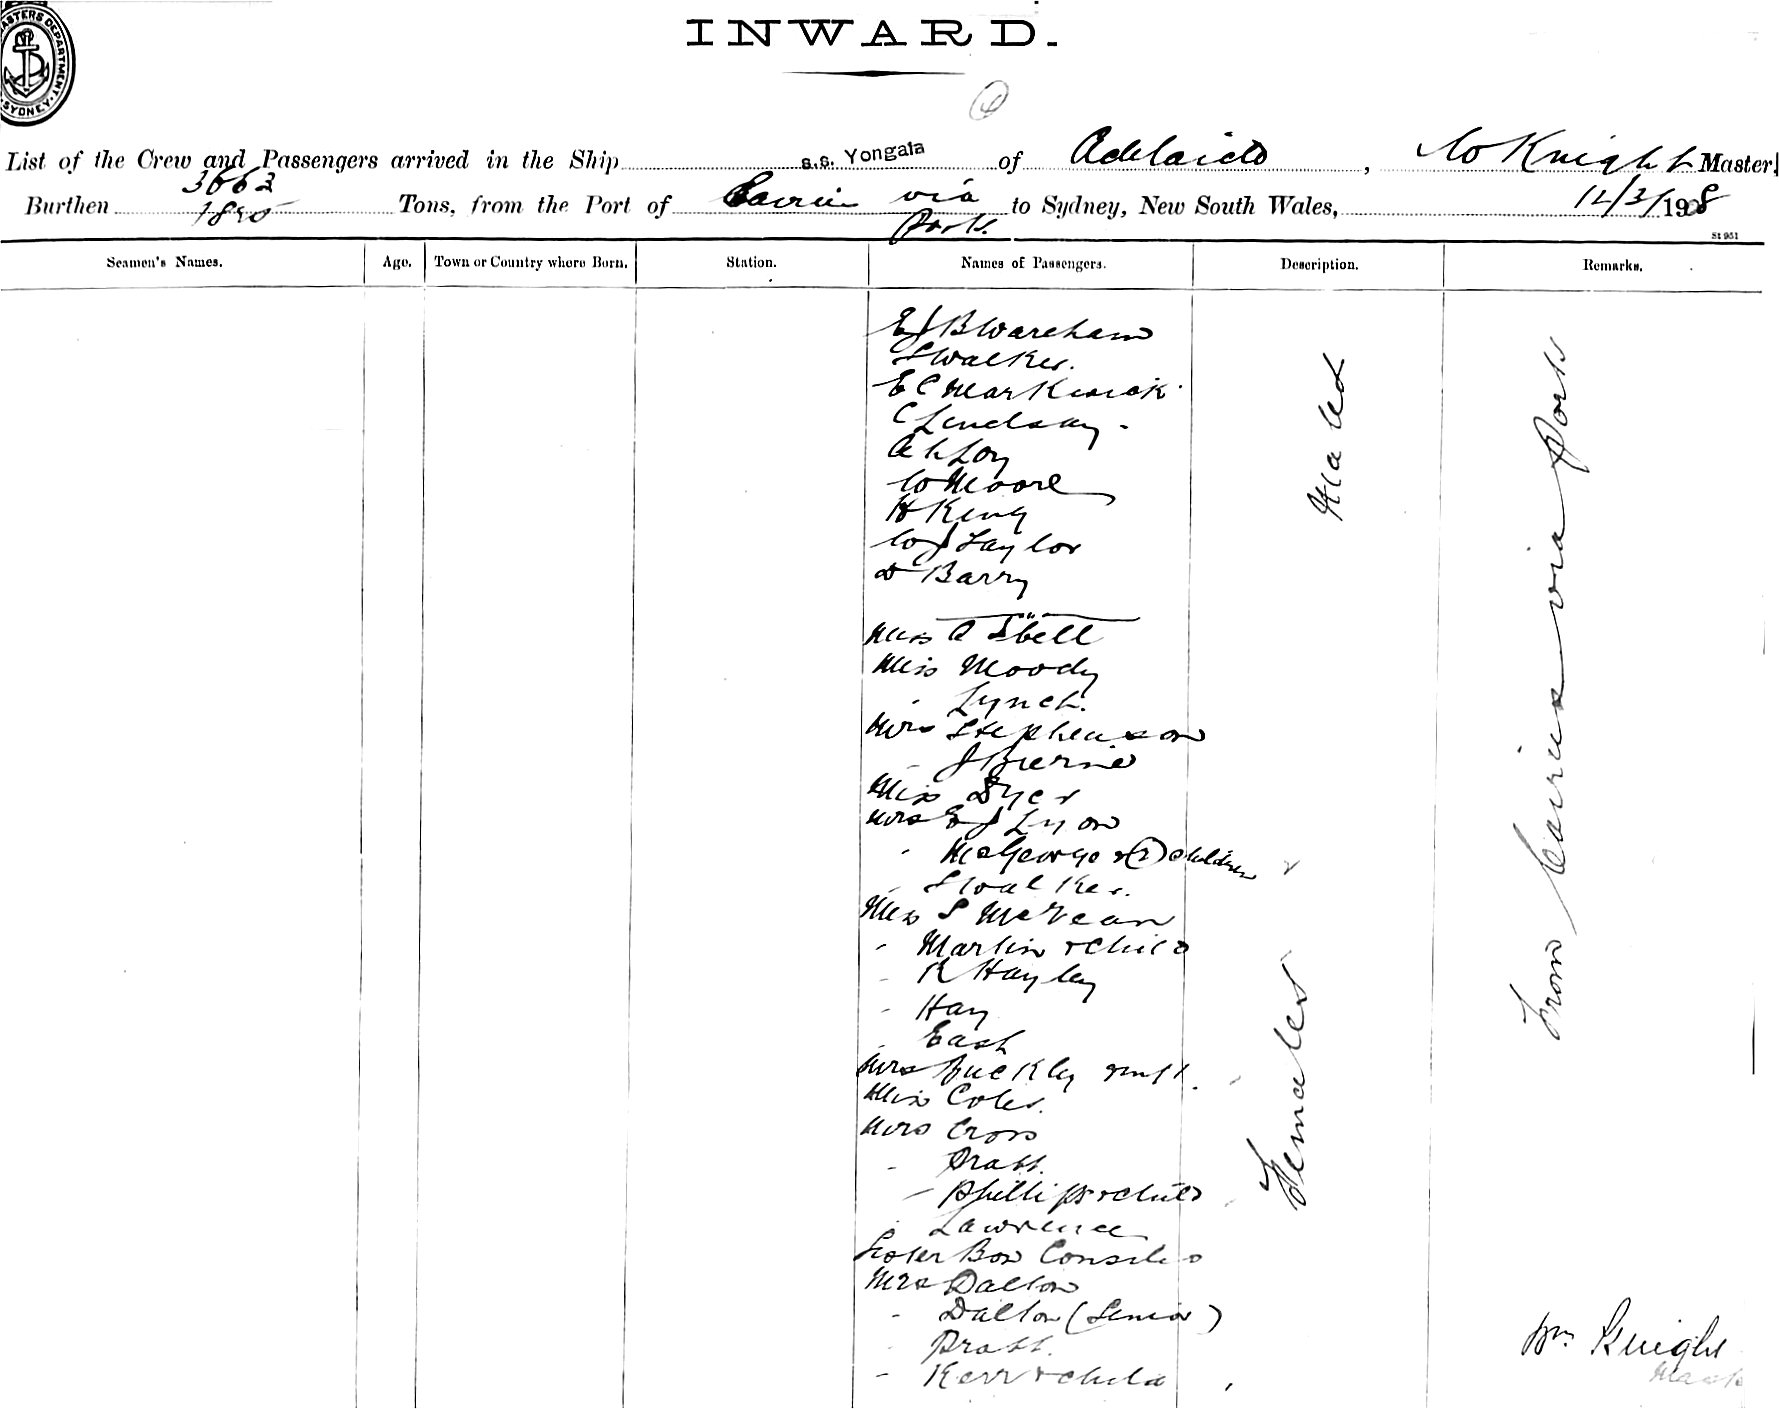 MASTERS DEPARTMENT. SYDNEY
INWARD.
List of the Crew and Passengers arrived in the Ship s.s. Yongala of Adelaide, W Knight Master,
Burthen 3663 1825 Tons, from the Port of Cairns via Ports to Sydney, New South Wales, 12/3/1908
St 951
Seamen's Names. Age. Town or Country where Born. Station. Names of Passengers. Description. Remarks.
E J B Wareham
S Walker.
E C
C Lindsay -
Ah Loy
W Moore
H King
W J Taylor
D Barry
Males
Miss A Isbell
Miss Moody
- Lynch.
Mrs Stephenson
- J Burine
Miss Dyer
Mrs E J Lyon
- McGeorge & (2) children
- S Walker.
Miss S McVean
- Martin & Child
- R Hayley
- Hay
- East
Mrs Buckley & Inft.
Miss Coles.
Mrs Cross
- Pratt.
- Phillips & Child
- Lawrence
Sister Bon Consilio
Mrs Dalton
- Dalton (Senior)
- Pratt.
- Kerr & child
Females
From Cairns via Ports
Wm Knight
Mast